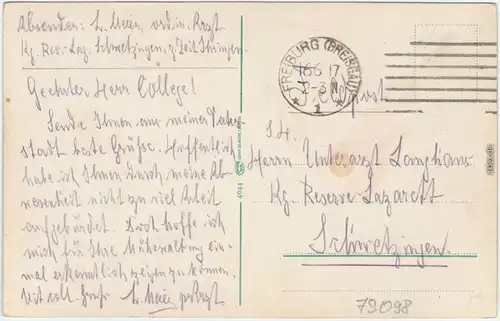 Absender: L. Maier, ord. in. Arzt
Kg. Res.-Laz. Schwetzingen, z. Zeit
Geehrter Herr College!
Sende Ihnen aus meiner Vater-
stadt beste Grüße. Hoffentlich
habe ich Ihnen durch meine Ab-
wesenheit nicht zu viel Arbeit
aufgebürdet. Doch hoffe ich
mich für Ihre Mühewaltung ein-
mal erkenntlich zeigen zu können.
Mit coll. Gruß L. Maier
FREIBURG (BREISGAU)
16.6.17
1
Feldpost
S.H.
Herrn Unterarzt Langhans
Kg. Reserve Lazarett
Schwetzingen.
79098